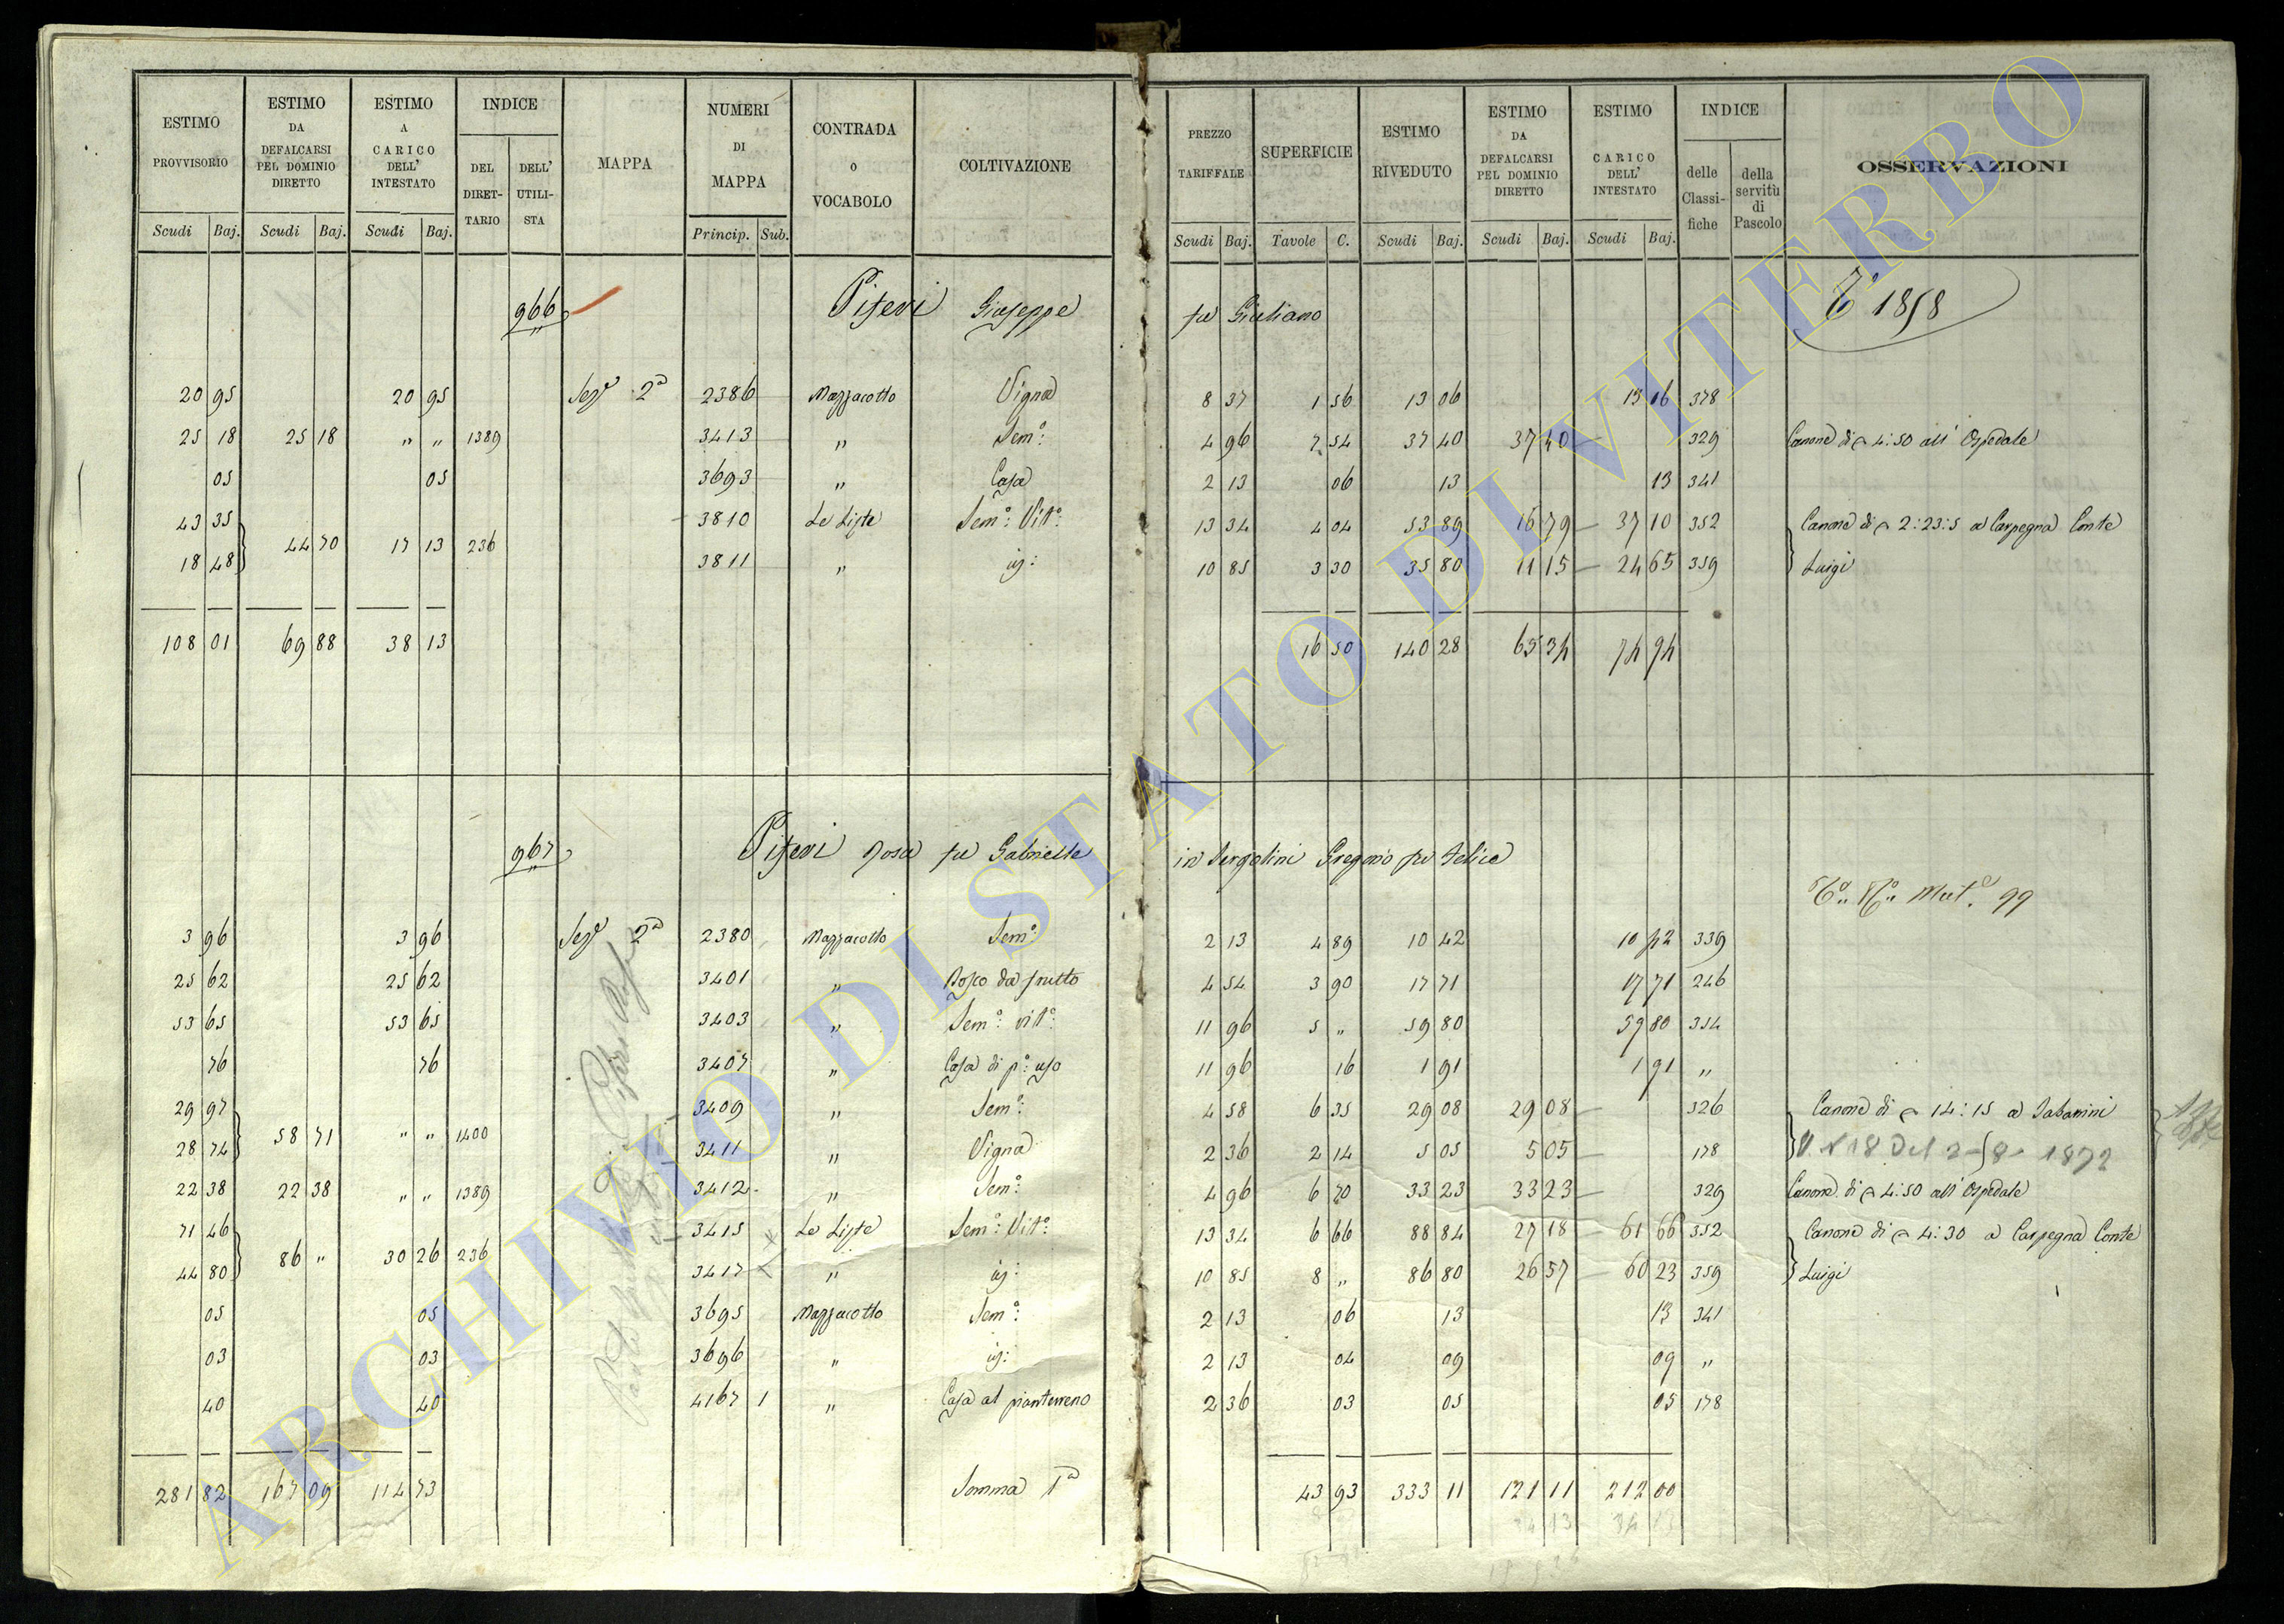 ESTIMO PROVVISORIO | ESTIMO DA DEFALCARSI PEL DOMINIO DIRETTO | ESTIMO A CARICO DELL' INTESTATO | INDICE | MAPPA | NUMERI DI MAPPA | CONTRADA o VOCABOLO | COLTIVAZIONE | PREZZO TARIFFALE | SUPERFICIE | ESTIMO RIVEDUTO | ESTIMO DA DEFALCARSI PEL DOMINIO DIRETTO | ESTIMO CARICO DELL' INTESTATO | INDICE | OSSERVAZIONI
DEL DIRET-TARIO | DELL' UTILI-STA | delle Classi-fiche | della servitù di Pascolo
Scudi Baj. | Scudi Baj. | Scudi Baj. | Princip. Sub. | Scudi Baj. | Tavole C. | Scudi Baj. | Scudi Baj. | Scudi Baj.
966 Piferi Giuseppe fu Giuliano 1858
20 95 | 20 95 | Sezе 2a | 2386 | Mazzacotto | Vigna | 8 37 | 1 56 | 13 06 | 13 06 | 378
25 18 | 25 18 | " " | 1389 | 3413 | " | Semo: | 4 96 | 7 54 | 37 40 | 37 40 | 329 | Canone di 4:50 all' Ospedale
05 | 05 | 3693 | " | Casa | 2 13 | 06 | 13 | 13 | 341
43 35 | 3810 | Le Liste | Semo: Vito: | 13 34 | 4 04 | 53 89 | 16 79 | 37 10 | 352 | Canone di 2:23:5 a Carpegna Conte
18 48 | 44 70 | 17 13 | 236 | 3811 | " | 10 85 | 3 30 | 35 80 | 11 15 | 24 65 | 359 | Luigi
108 01 | 69 88 | 38 13 | 16 50 | 140 28 | 65 34 | 74 94
967 Piferi Rosa fu Gabrielle in Sergolini Gregorio fu Felice
Mut. 99
3 96 | 3 96 | Seze 2a | 2380 | Mazzacotto | Semo: | 2 13 | 4 89 | 10 42 | 10 42 | 339
25 62 | 25 62 | 3401 | " | Bosco da frutto | 4 54 | 3 90 | 17 71 | 17 71 | 246
53 65 | 53 65 | 3403 | " | Semo: vito: | 11 96 | 5 " | 59 80 | 59 80 | 354
76 | 76 | 3407 | " | Casa di po: uso | 11 96 | 16 | 1 91 | 1 91 | "
29 97 | 3409 | " | Semo: | 4 58 | 6 35 | 29 08 | 29 08 | 326 | Canone di 14:15 a Sabatini
28 74 | 58 71 | " " | 1400 | 3411 | " | Vigna | 2 36 | 2 14 | 5 05 | 5 05 | 178 | V N 18 Del 2-8-1872
22 38 | 22 38 | " " | 1389 | 3412 | " | Semo: | 4 96 | 6 70 | 33 23 | 33 23 | 329 | Canone di 4:50 all' Ospedale
71 46 | 3415 | Le Liste | Semo: Vito: | 13 34 | 6 66 | 88 84 | 27 18 | 61 66 | 352 | Canone di 4:30 a Carpegna Conte
44 80 | 86 " | 30 26 | 236 | 3417 | " | 10 85 | 8 " | 86 80 | 26 57 | 60 23 | 359 | Luigi
05 | 05 | 3695 | Mazzacotto | Semo: | 2 13 | 06 | 13 | 13 | 341
03 | 03 | 3696 | " | 2 13 | 04 | 09 | 09 | "
40 | 40 | 4167 1 | " | Casa al pianterreno | 2 36 | 03 | 05 | 05 | 178
281 82 | 167 09 | 114 73 | Somma 1a | 43 93 | 333 11 | 121 11 | 212 00
34 13
ARCHIVIO DI STATO DI VITERBO